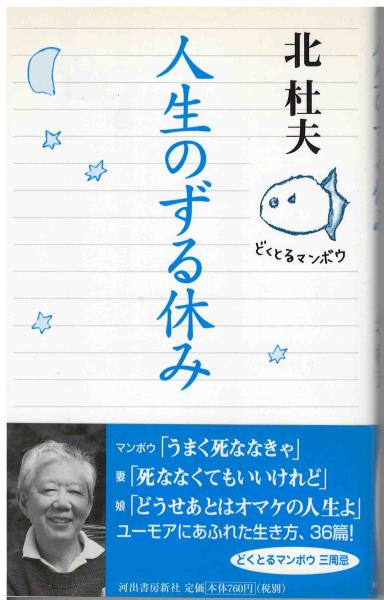 北 杜夫
人生のずる休み
どくとるマンボウ
マンボウ「うまく死ななきゃ」
妻「死ななくてもいいけれど」
娘「どうせあとはオマケの人生よ」
ユーモアにあふれた生き方、36篇!
どくとるマンボウ 三周忌
河出書房新社 定価 本体760円(税別)